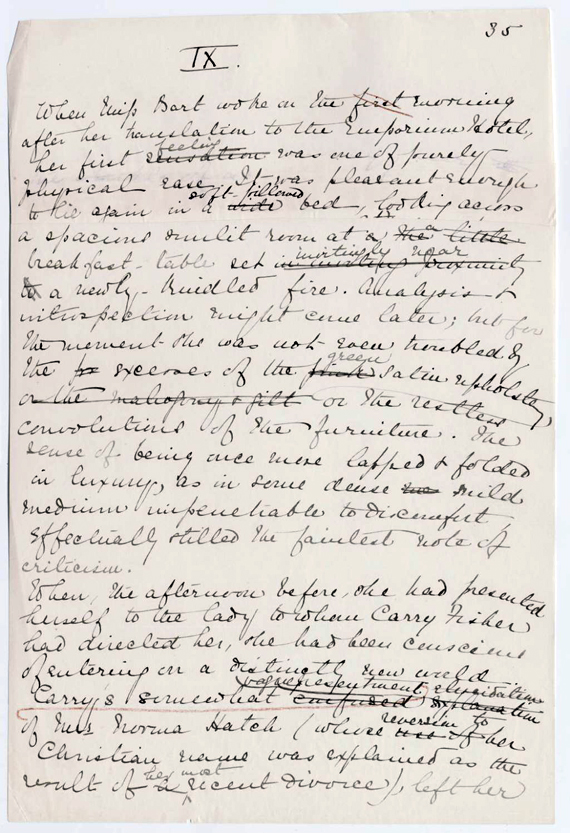 35
IX.
When Miss Bart woke on the first morning
after her translation to the Emporium Hotel,
her first sensation feeling was one of purely
physical ease. It was pleasant enough
to lie again in a wide soft-pillowed bed, looking across
a spacious sunlit room at a the a little
breakfast-table set in inviting proximity invitingly near
to a newly-kindled fire. Analysis &
introspection might come later; but for
the moment she was not even troubled by
the excesses of the pink green satin upholstery,
or the mahogany & gilt or the restless
convolutions of the furniture. The
sense of being once more lapped & folded
in luxury, as in some dense mild
medium impenetrable to discomfort,
effectually stilled the faintest note of
criticism.
When, the afternoon before, she had presented
herself to the lady to whom Carry Fisher
had directed her, she had been conscious
of entering on a distinctly new world.
Carry's somewhat confused vague presentment, elucidation explanation
of Mrs Norma Hatch (whose use of reversion to her
Christian name was explained as the
result of a her most recent divorce), left her